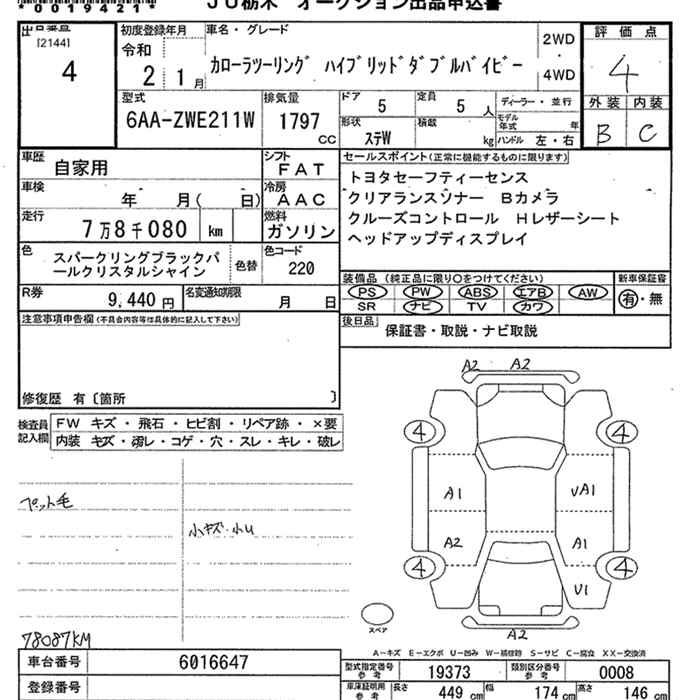 *0019421*
JU栃木 オークション出品申込書
出品番号
[2144]
4
初度登録年月
令和
2 1月
車名・グレード
カローラツーリング ハイブリッドダブルバイビー
2WD
・
4WD
評価点
4
外装 内装
B C
型式
6AA-ZWE211W
排気量
1797
CC
ドア
5
定員
5 人
形状
ステW
積載
kg
ディーラー・並行
モデル年式 年
ハンドル 左・右
車歴
自家用
シフト
FAT
車検
年 月( 日)
冷房
AAC
走行
7万8千080 km
燃料
ガソリン
色
スパークリングブラックパ
ールクリスタルシャイン
色替
色コード
220
R券
9,440円
名変通知期限
月 日
セールスポイント(正常に機能するものに限ります)
トヨタセーフティーセンス
クリアランスソナー Bカメラ
クルーズコントロール Hレザーシート
ヘッドアップディスプレイ
装備品 (純正品に限り○をつけてください)
PS PW ABS エアB AW
SR ナビ TV カワ
新車保証書
有・無
後日品
保証書・取説・ナビ取説
注意事項申告欄(不具合内容等は具体的に記入して下さい)
修復歴 有〔箇所 〕
検査員
記入欄
FW キズ・飛石・ヒビ割・リペア跡・×要
内装 キズ・汚レ・コゲ・穴・スレ・キレ・破レ
ペット毛
小キズ・小U
78087KM
A2 A2
4 4
A1 VA1
A2 A1
4 4
V1
A2
スペア
A−キズ E−エクボ U−凹み W−補修跡 S−サビ C−腐食 XX−交換済
車台番号
6016647
登録番号
型式指定番号
参考
19373
類別区分番号
参考
0008
車庫証明用
参考
長さ 449 cm
幅 174 cm
高さ 146 cm